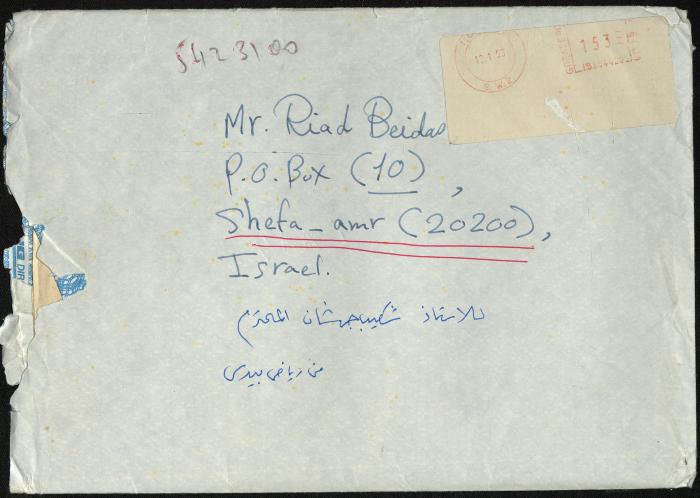 5423100
S.W.
153
Mr. Riad Beidas
P.O. Box (10),
Shefa-amr (20200),
Israel.
للاستاذ شكيب جهشان المحترم
من رياض بيدس
DIR